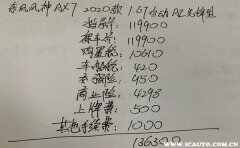 东风风神AX7 2020款 1.6T自动AI先锋型
指导价: 119900
裸车价: 119900
购置税: 10610
车船税: 420
交强险: 950
商业险: 4295
上牌费: 500
其他手续费: 1000
136300
www.icauto.com.cn